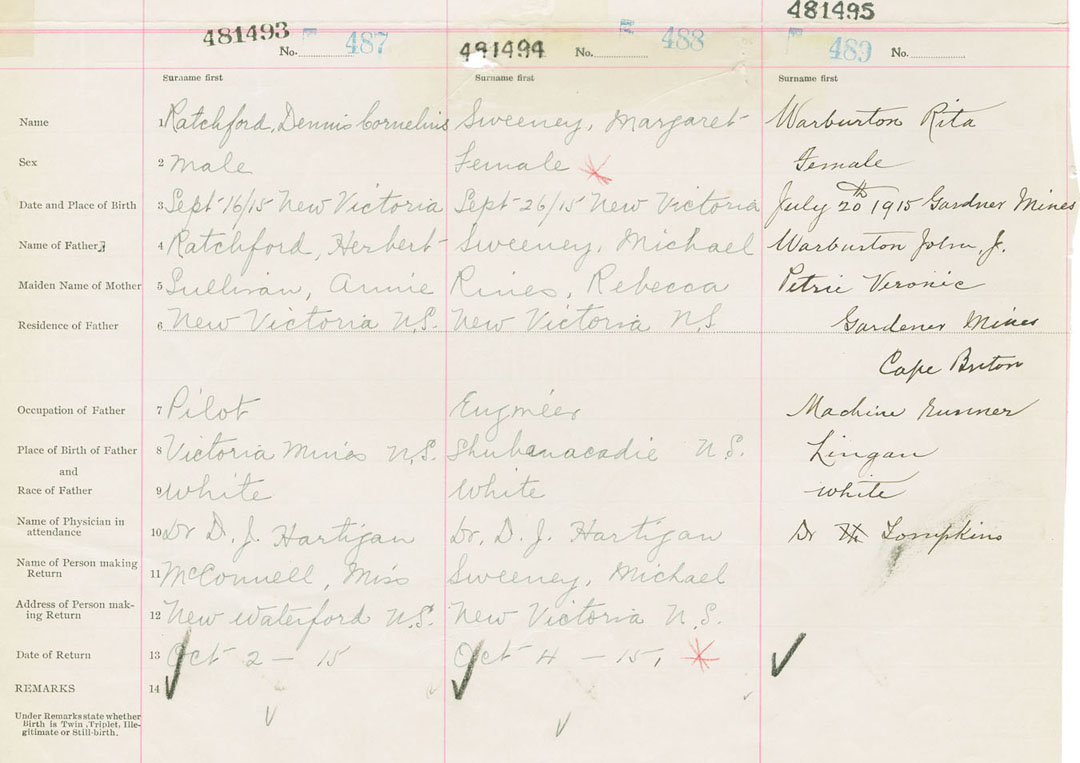 481495
481493 487 No.
481494 No. 488
489 No.
Surname first Surname first Surname first
Name 1 Ratchford, Dennis Cornelius Sweeney, Margaret Warburton Rita
Sex 2 Male Female Female
Date and Place of Birth 3 Sept 16/15 New Victoria Sept 26/15 New Victoria July 20th 1915 Gardner Mines
Name of Father 4 Ratchford, Herbert Sweeney, Michael Warburton John, J.
Maiden Name of Mother 5 Sullivan, Annie Rines, Rebecca Petrie Veronic
Residence of Father 6 New Victoria N.S. New Victoria N.S Gardener Mines
Cape Breton
Occupation of Father 7 Pilot Engineer Machine Runner
Place of Birth of Father 8 Victoria Mines N.S. Shubanacadie N.S. Lingan
and
Race of Father 9 White White White
Name of Physician in
attendance 10 Dr D. J. Hartigan Dr. D. J. Hartigan Dr Tompkins
Name of Person making
Return 11 McConnell, Miss Sweeney, Michael
Address of Person mak-
ing Return 12 New Waterford N.S. New Victoria N.S.
Date of Return 13 Oct 2 - 15 Oct 4 - 15,
REMARKS 14
Under Remarks state whether
Birth is Twin, Triplet, Ille-
gitimate or Still-birth.